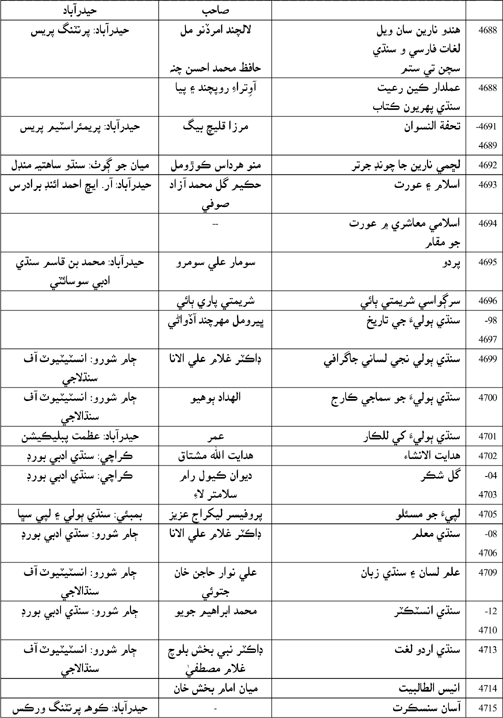 صاحب	حيدرآباد
4688	هندو نارين سان ويل	لالچند امرڏنو مل	حيدرآباد: پرنٽنگ پريس
لغات فارسي و سنڌي
سچن تي ستم	حافظ محمد احسن چنہ
4688	عملدار ڪين رعيت	آوتراءِ روپچند ۽ ٻيا
سنڌي پهريون ڪتاب
4691-	تحفة النسوان	مرزا قليچ بيگ	حيدرآباد: پريمئراسٽيم پريس
4689
4692	لڇمي نارين جا چونڊ چرتر	منو هرداس ڪوڙومل	ميان جو ڳوٺ: سنڌو ساهتيہ منڊل
4693	اسلام ۽ عورت	حڪيم گل محمد آزاد	حيدرآباد: آر. ايڇ احمد ائنڊ برادرس
صوفي
4694	اسلامي معاشري ۾ عورت	--
جو مقام
4695	پردو	سومار علي سومرو	حيدرآباد: محمد بن قاسم سنڌي
ادبي سوسائٽي
4696	سرڳواسي شريمتي ٻائي	شريمتي پاري ٻائي
98-	سنڌي ٻوليءَ جي تاريخ	ڀيرومل مهرچند آڏواڻي
4697
4699	سنڌي ٻولي نجي لساني جاگرافي	ڊاڪٽر غلام علي الانا	ڄام شورو: انسٽيٽيوٽ آف
سنڌلاجي
4700	سنڌي ٻوليءَ جو سماجي ڪارج	الهداد ٻوهيو	ڄام شورو: انسٽيٽيوٽ آف
سنڌالاجي
4701	سنڌي ٻوليءَ کي للڪار	عمر	حيدرآباد: عظمت پبليڪيشن
4702	هدايت الانشاء	هدايت الله مشتاق	ڪراچي: سنڌي ادبي بورڊ
04-	گل شڪر	ديوان ڪيول رام	ڪراچي: سنڌي ادبي بورڊ
4703	سلامتر لاءِ
4705	لپيءَ جو مسئلو	پروفيسر ليکراج عزيز	بمبئي: سنڌي ٻولي ۽ لپي سڀا
08-	سنڌي معلم	ڊاڪٽر غلام علي الانا	ڄام شورو: سنڌي ادبي بورڊ
4706
4709	علم لسان ۽ سنڌي زبان	علي نوار حاجن خان	ڄام شورو: انسٽيٽيوٽ آف
جتوئي	سنڌالاجي
12-	سنڌي انسٽڪٽر	محمد ابراهيم جويو	ڄام شورو: سنڌي ادبي بورڊ
4710
4713	سنڌي اردو لغت	ڊاڪٽر نبي بخش بلوچ	ڄام شورو: انسٽيٽيوٽ آف
غلام مصطفيٰ	سنڌالاجي
4714	انيس الطالبيت	ميان امام بخش خان
4715	آسان سنسڪرت	-	حيدرآباد: ڪوھہ پرنٽنگ ورڪس